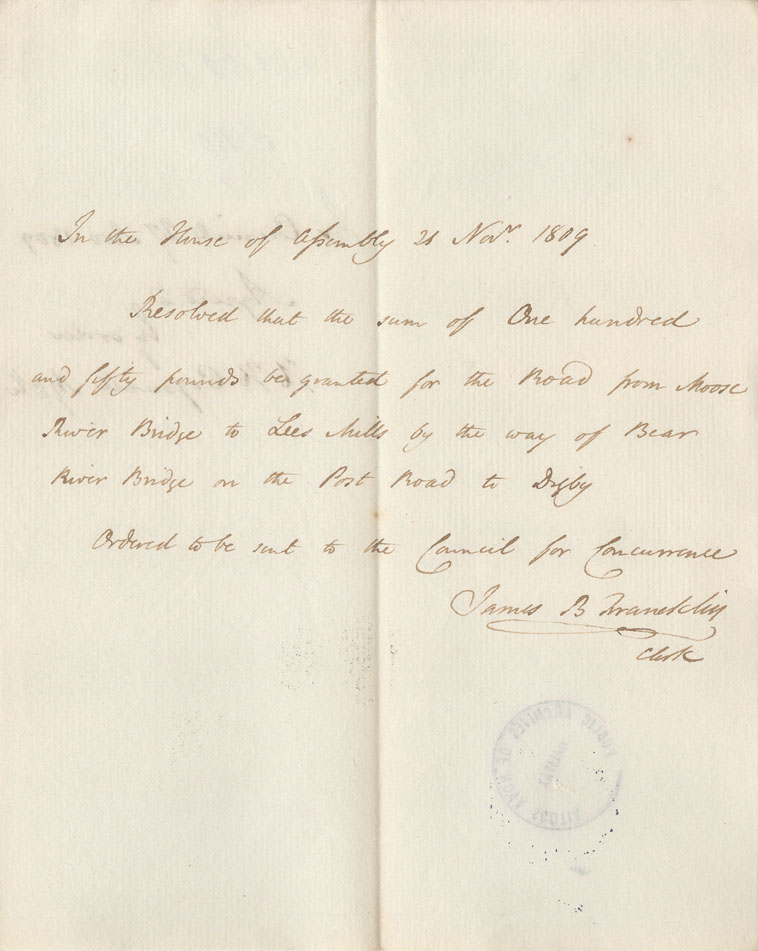 In the House of Assembly 21 Novr. 1809
Resolved that the sum of One hundred
and fifty pounds be granted for the Road from Moose
River Bridge to Lees Mills by the way of Bear
River Bridge on the Post Road to Digby
Ordered to be sent to the Council for Concurrence
James B Francklin
Clerk
PUBLIC ARCHIVES OF NOVA SCOTIA